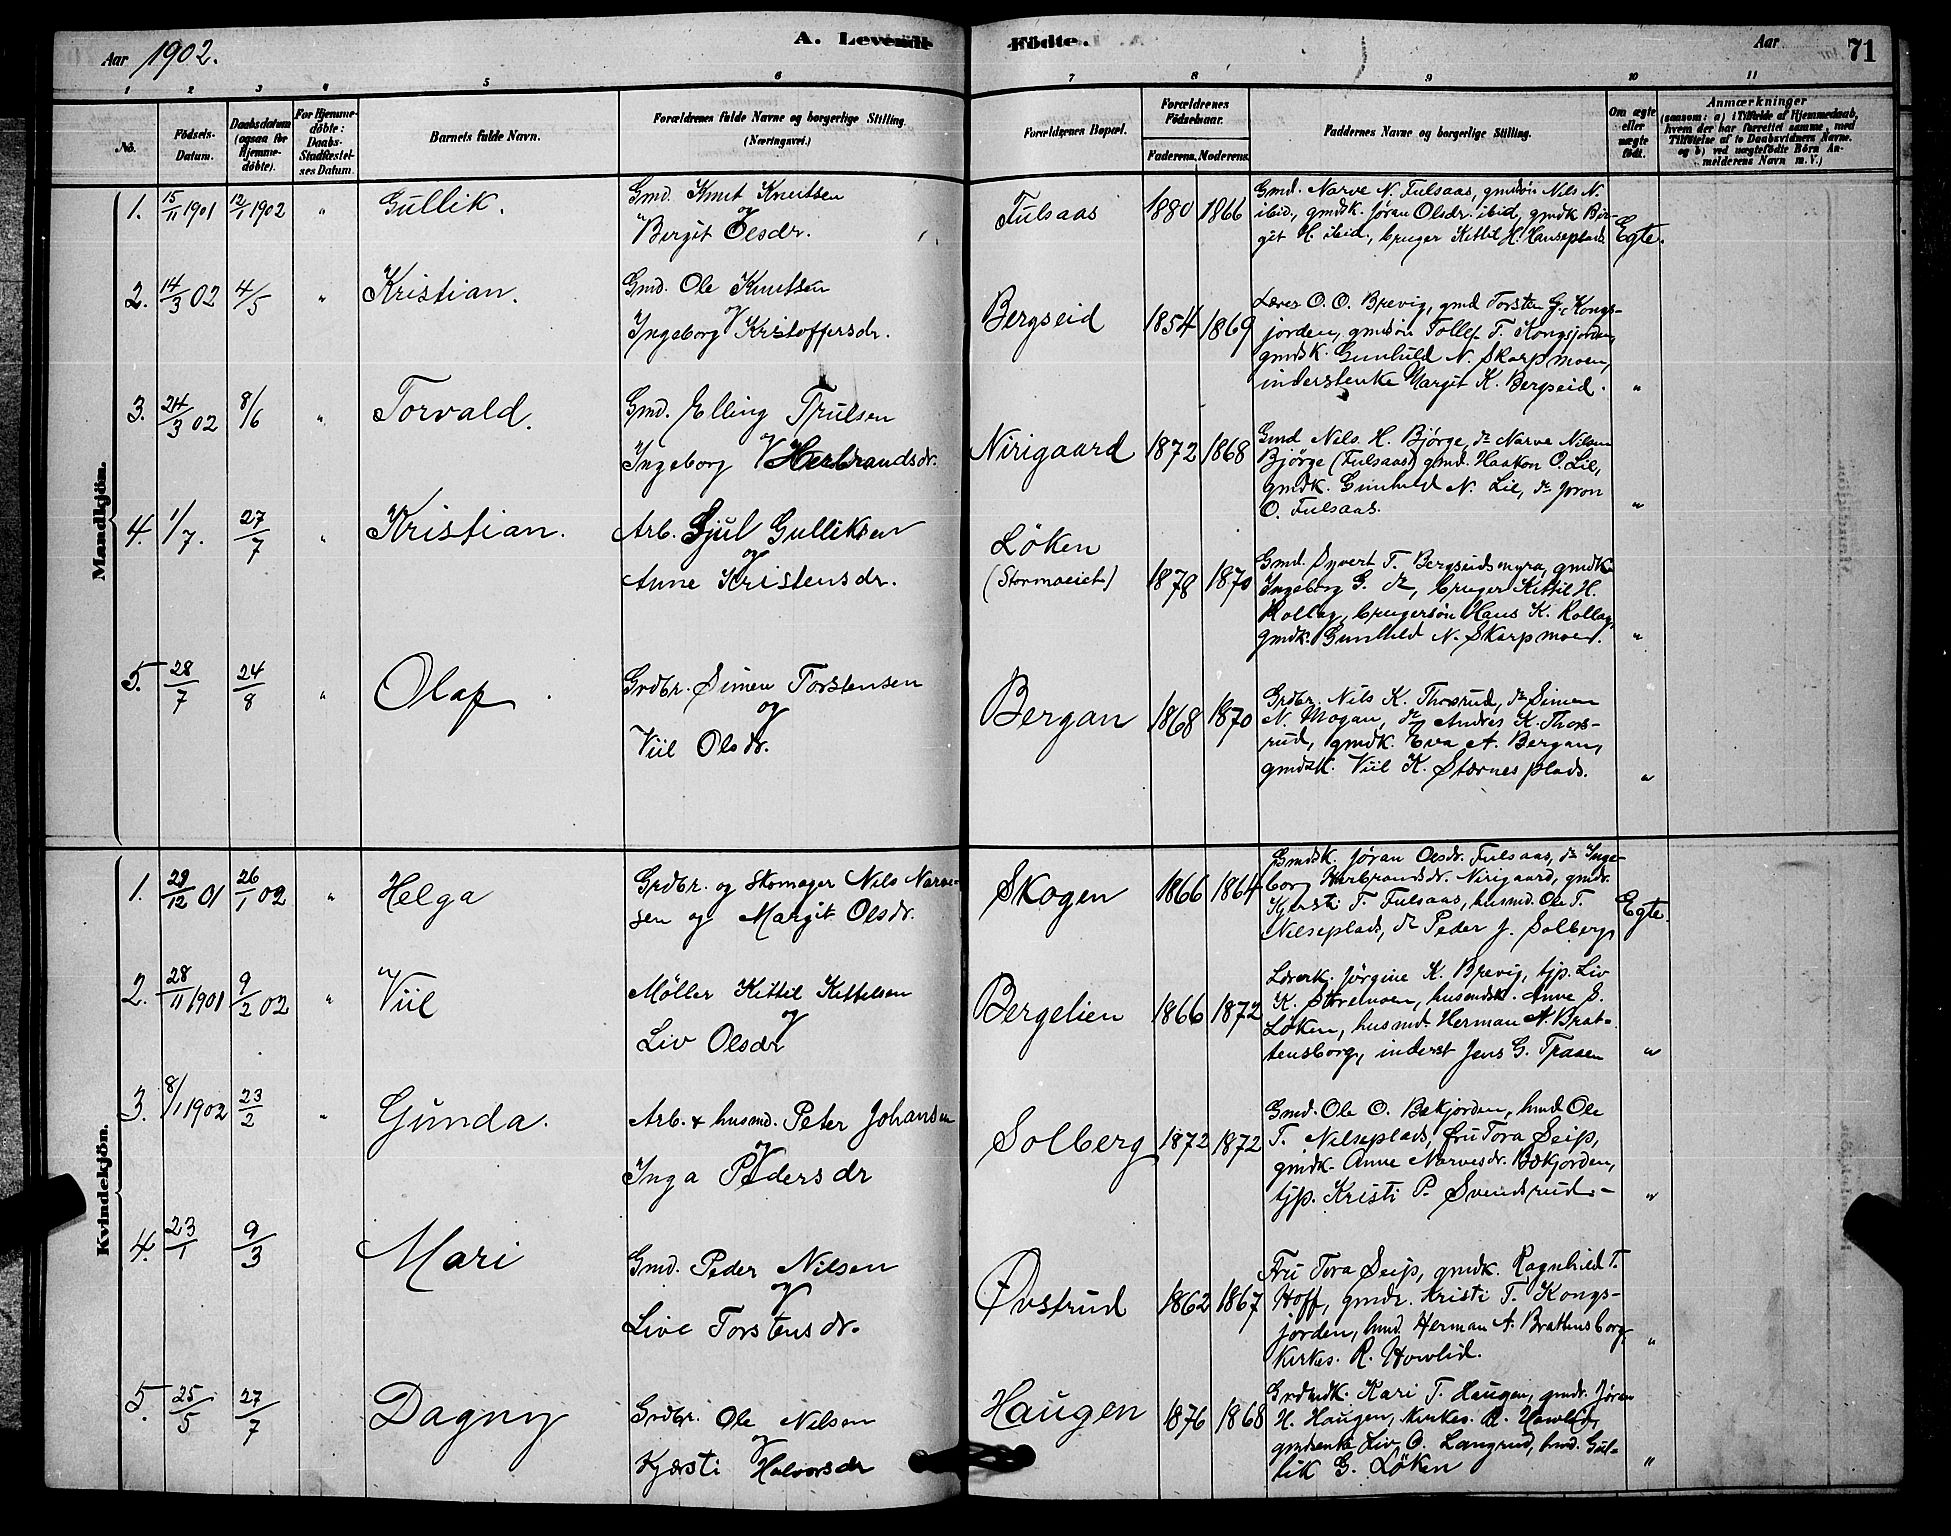 Aar 1902.
A. Levende
Födte.
Aar
71
1 2 3 4 5 6 7 8 9 10 11
No.
Födsels-
Datum.
Daabsdatum
(ogsaa for
Hjemme-
döbte).
For Hjemme-
döbte:
Daabs-
Stadfæstel-
ses Datum.
Barnets fulde Navn.
Forældrenes fulde Navne og borgerlige Stilling.
(Næringsvei.)
Forældrenes Bopæl.
Forældrenes
Födselsaar.
Faderens. Moderens.
Faddernes Navne og borgerlige Stilling.
Om ægte
eller
uægte
födt.
Anmærkninger
(saasom: a) i Tilfælde af Hjemmedaab,
hvem der har forrettet samme, med
Tilföielse af to Daabsvidners Navne.
og b) ved uægtefödte Börn An-
melderens Navn m. V.)
Mandkjön.
1. 15/11 1901 12/1 1902 " Gullik.
Gmd. Knut Knutsen
og
Bergit Olsdr.
Fulsaas 1880 1866
Gmd. Narve N. Fulsaas, gmdsön Nils N.
ibid., gmdsk. Jøran Olsdr. ibid, gmdk Bir-
git H. ibid., bruger Kittil H. Hanseplads.
Egte.
2. 14/3 02 4/5 " Kristian.
Gmd. Ole Knutsen
og
Ingeborg Kristoffersdr.
Bergseid 1854 1869
Lærer O. O. Brevig, gmd Torsten G. Kongs-
jorden, gmdsøn Tollef T. Kongsjorden,
gmdsk. Gunhild N. Skarpmoen,
inderstenke Margit K. Bergseid. "
3. 24/3 02 8/6 " Torvald.
Gmd. Elling Trulsen
og
Ingeborg Herbrandsdr.
Nirigaard 1872 1868
Gmd Nels. H. Bjørge, do Narve Nilsen
Bjørge (Fulsaas) gmd. Haakon O. Lie,
gmdk. Gunhild N. Lie, do Joron
O. Fulsaas. "
4. 1/7. 27/7 " Kristian.
Arb. Sjul Gulliksen
og
Anne Kristensdr.
Løken
(Stormoeiet) 1878 1870
Gmd. Syvert T. Bergseidsmyra, gmdk
Ingeborg G. do, bruger Kittil H.
Rollag, brugersøn Hans K. Rollag,
gmdk. Gunhild N. Skarpmoen. "
5. 28/7 24/8 " Olaf
Grdbr. Simen Torstensen
og
Viil Olsdr.
Bergan 1868 1870
Grdbr. Nils K. Thorsrud, do Simen
N. Mogan, do Andres K. Thors-
rud, gmdk. Eva A. Bergan,
gmdsk. Viil K. Stærnesplads. "
Kvindekjön.
1. 29/12 01 26/1 02 " Helga
Grdbr. og Skomager Nils Narve-
sen og Margit Olsdr.
Skogen 1866 1864
Gmdsk. Jøran Olsdr. Fulsaas, do Inge-
borg Herbrandsdr. Nirigaard, gmdr.
Kjersti T. Fulsaas, husmd. Ole T.
Nilseplads, do Peder J. Solberg,
Egte.
2. 28/11 1901 9/2 02 " Viil
Møller Kittil Kittilsen
og
Liv Olsdr
Bergelien 1866 1872
Lærerk. Jørgine K. Brevig, tjp. Liv
K. Storemoen, husmdsk. Anne S.
Løken, husmd. Herman A. Brat-
tensborg, inderst Jens G. Traaen "
3. 8/1 1902 23/2 " Gunda.
Arb. & husmd. Peter Johansen
og
Inga Pedersdr
Solberg 1872 1872
Gmd. Ole O. Bekjorden, hmd Ole
T. Nilseplads, fru Tora Seip,
gmdk. Anne Narvesdr. Bækjorden,
tjp. Kristi P. Svendsrud. "
4. 23/1 9/3 Mari
Gmd. Peder Nilsen
og
Live Torstensdr.
Øvstrud 1862 1867
Fru Tora Seip, gmdk. Ragnhild T.
Hoff, gmdr. Kristi T. Kongs-
jorden, hmd. Herman A. Brattensborg,
kirkes. R. Howlid. "
5. 25/5 27/7 Dagny
Grdbr. Ole Nilsen
og
Kjersti Halvorsdr
Haugen 1876 1868
Grdmdk. Kari T. Haugen, gmdr. Jøran
H. Haugen, kirkes. R. Howlid,
gmdenke Liv O. Langrud, hmd. Gul-
lik G. Løken "